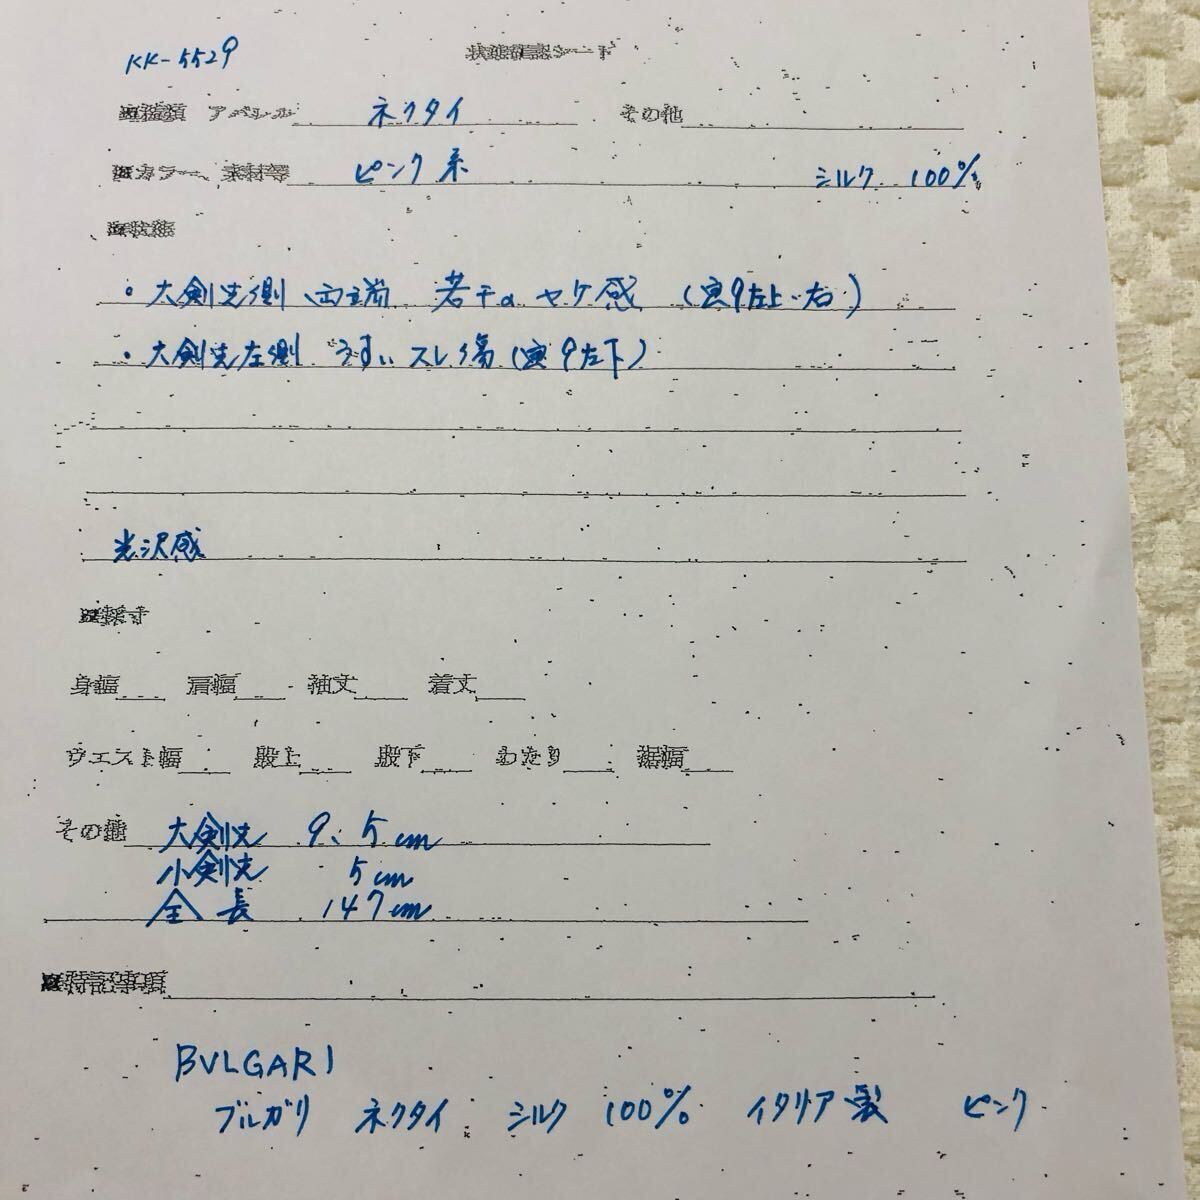 KK-5529 状態確認シート
■種類 アパレル ネクタイ その他
■カラー、素材等 ピンク系 シルク 100%
■状態
・大剣先側 両端 若干の ヤケ感 (寅9左上・右)
・大剣先左側 うすい スレ傷 (寅9左下)
光沢感
■採寸
身幅 肩幅 袖丈 着丈
ウエスト幅 股上 股下 わたり 裾幅
その他 大剣先 9.5cm
小剣先 5cm
全長 147cm
■特記事項
BVLGARI
ブルガリ ネクタイ シルク 100% イタリア製 ピンク